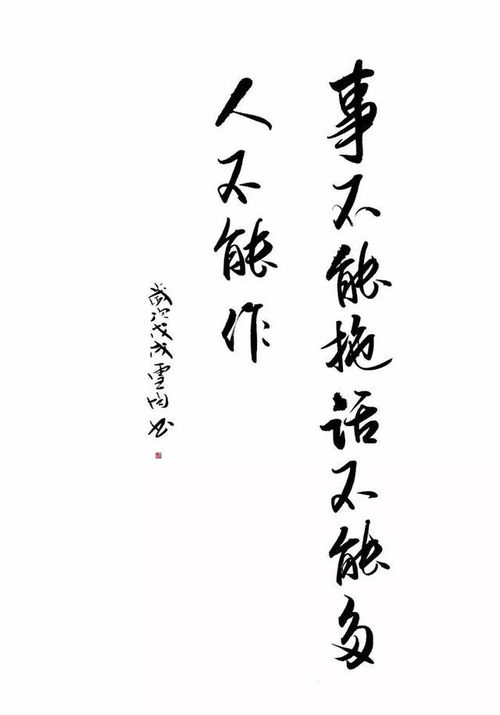 事不能拖话不能多
人不能作
岁次戊戌雪涛书